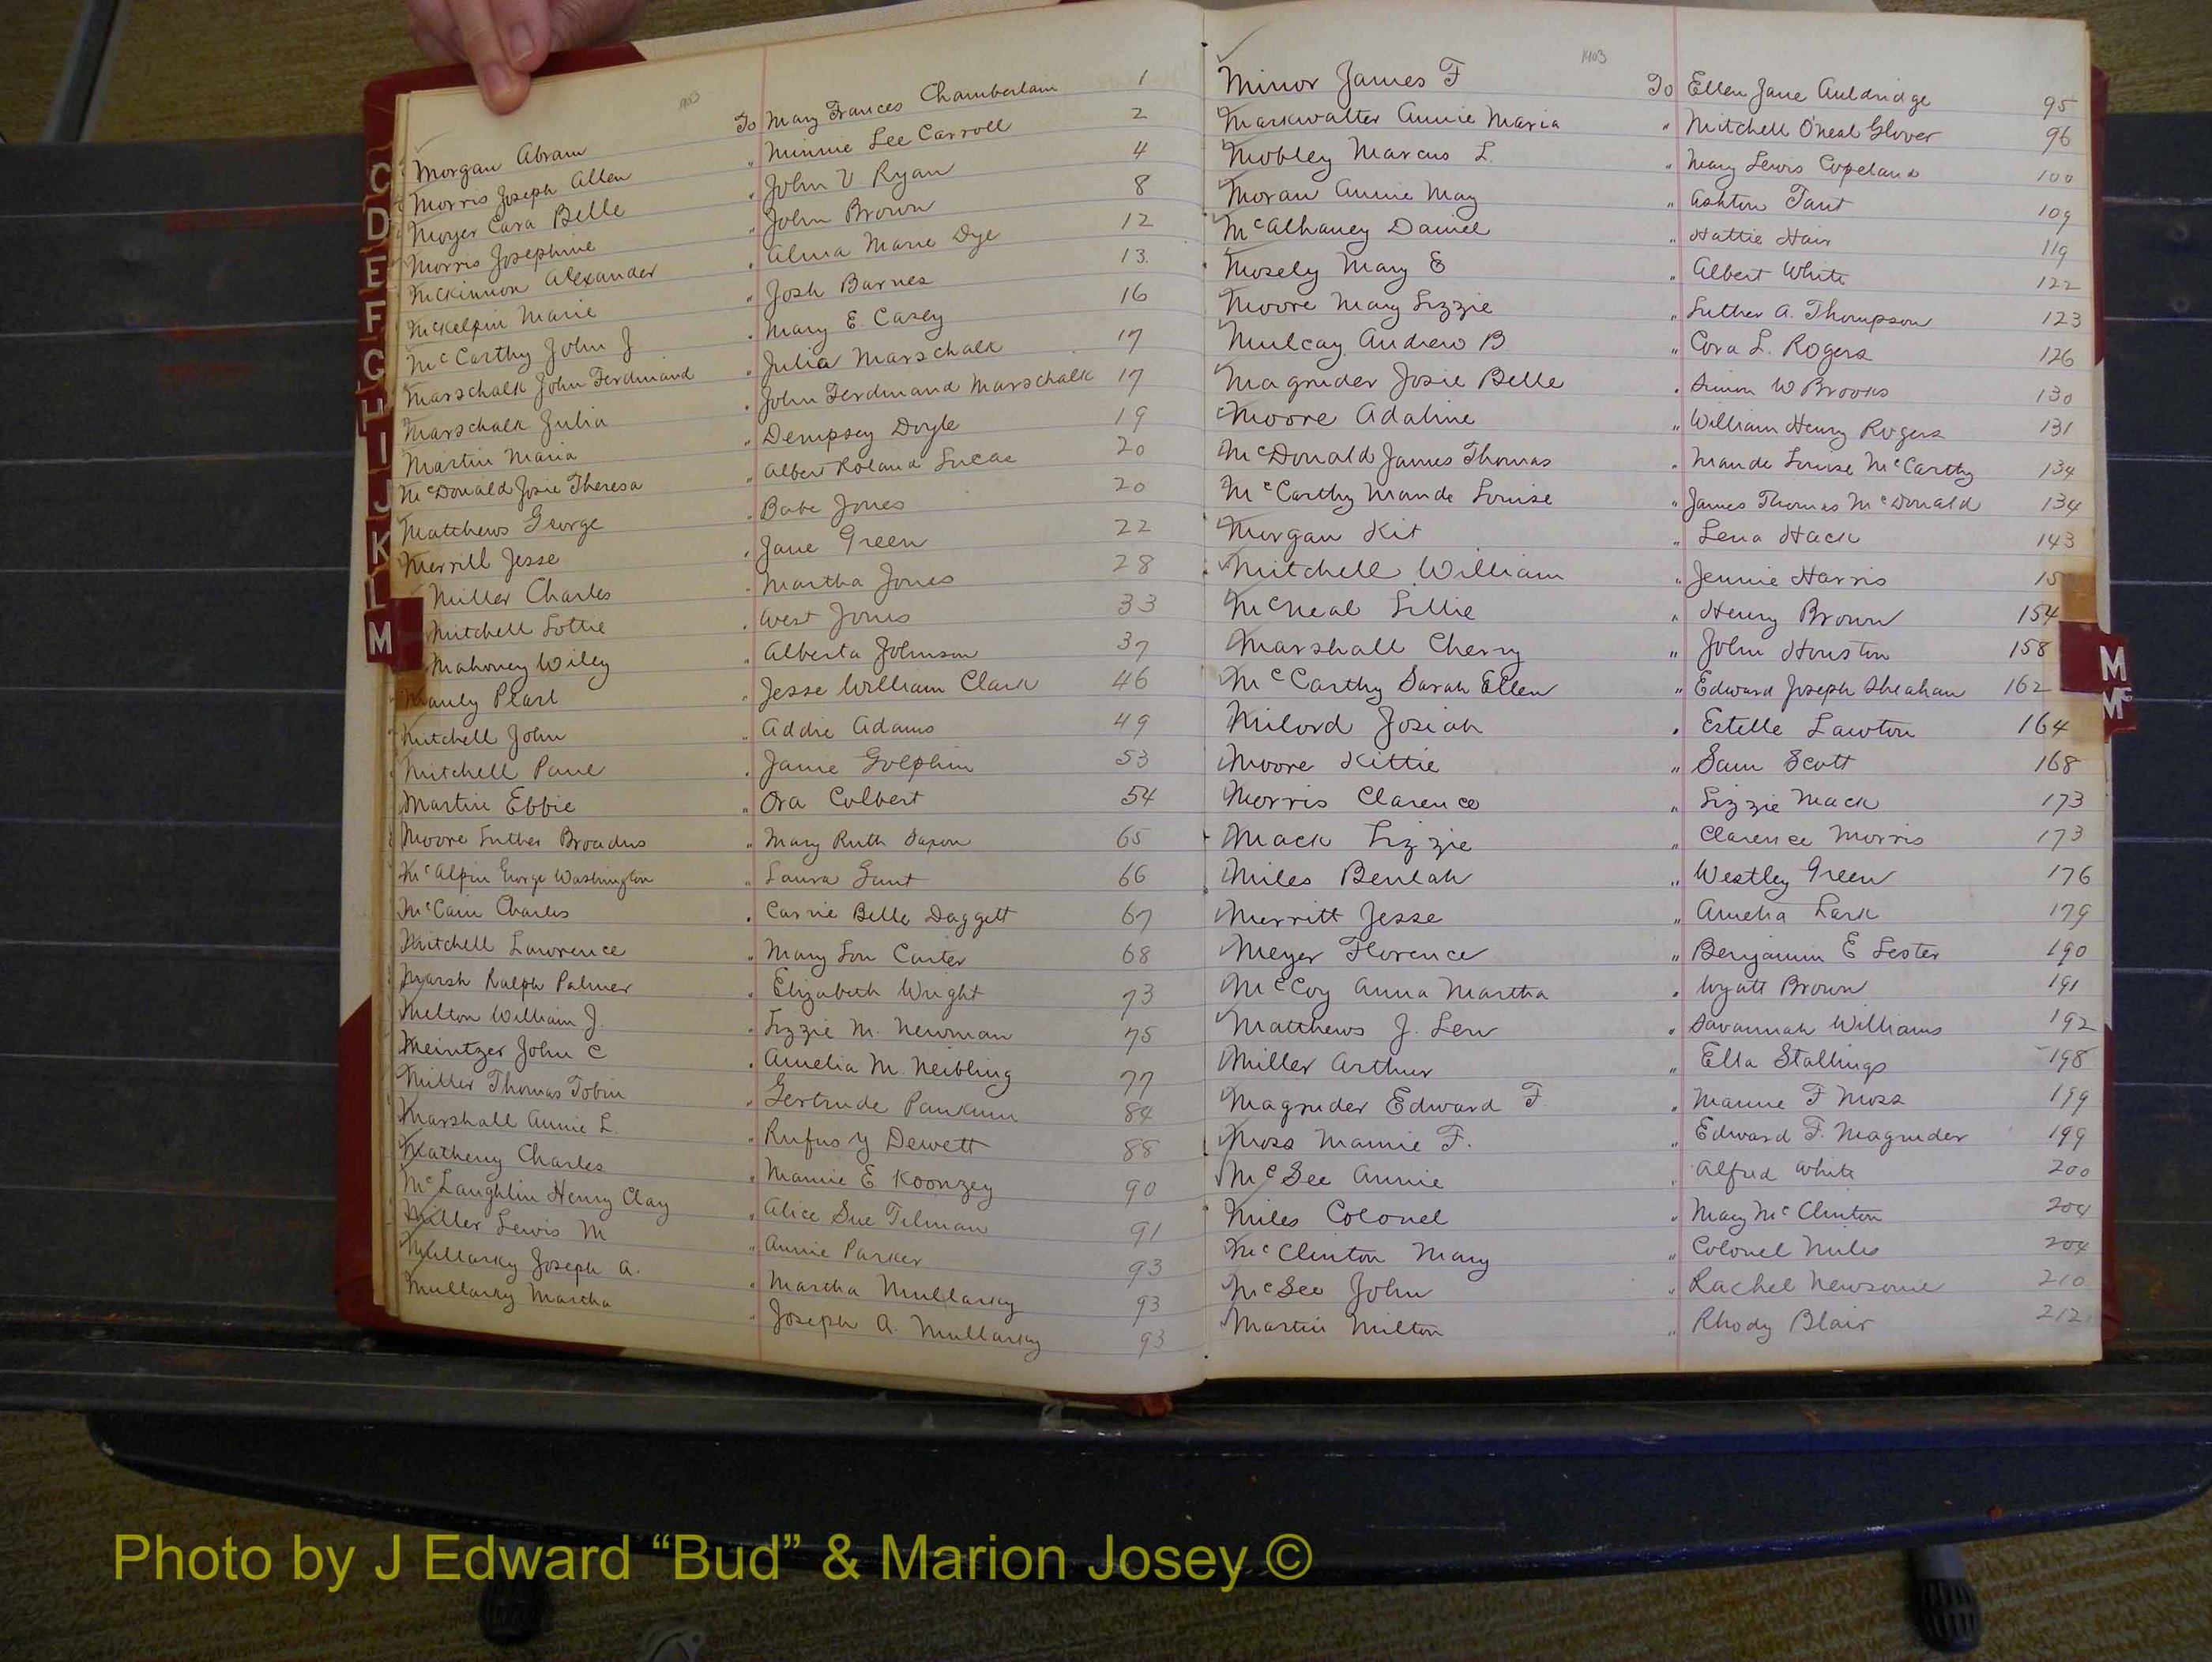 1903
Morgan Abram To Mary Frances Chamberlain 1
Morris Joseph Allen " Minnie Lee Carroll 2
Moyer Cara Belle " John V. Ryan 4
Morris Josephine " John Brown 8
McKinnon Alexander " Alma Marie Dye 12
McKelpin Marie " Josh Barnes 13
McCarthy John J " Mary E Casey 16
Marschalk John Ferdinand " Julia Marschalk 17
Marschalk Julia " John Ferdinand Marschalk 17
Martin Maria " Dempsey Doyle 19
McDonald Josie Theresa " Albert Roland Lucas 20
Matthews George " Babe Jones 20
Merrill Jesse " Jane Green 22
Miller Charles " Martha Jones 28
Mitchell Lottie " West Jones 33
Mahoney Wiley " Alberta Johnson 37
Manly Pearl " Jesse William Clark 46
Mitchell John " Addie Adams 49
Mitchell Paul " Janie Golphin 53
Martin Ebbie " Ora Colbert 54
Moore Luther Broadus " Mary Ruth Saxon 65
McAlpin George Washington " Laura Gant 66
McCain Charles " Carrie Belle Daggett 67
Mitchell Lawrence " Mary Lou Carter 68
Marsh Ralph Palmer " Elizabeth Wright 73
Melton William J. " Lizzie M. Newman 75
Meintzer John C " Amelia M. Neibling 77
Miller Thomas Tobin " Gertrude 84
Marshall Annie L. " Rufus Y Dewett 88
Matheny Charles " Mamie E Koonzey 90
McLaughlin Henry Clay " Alice Sue Tilman 91
Miller Lewis M " Annie Parker 93
Mullarky Joseph A. " Martha Mullarky 93
Mullarky Martha " Joseph A. Mullarky 93
1903
Minor James F To Ellen Jane Auldridge 95
Markwalter Annie Maria " Mitchell O'Neal Glover 96
Mobley Marcus L. " Mary Lewis Copeland 100
Moran Annie May " Ashton Tant 109
McAlhaney Daniel " Hattie Hair 119
Mosely Mary E " Albert White 122
Moore Mary Lizzie " Luther A. Thompson 123
Mulcay Andrew B " Cora L. Rogers 126
Magruder Josie Belle " Simon W Brooks 130
Moore Adaline " William Henry Rogers 131
McDonald James Thomas " Maude Louise McCarthy 134
McCarthy Maude Louise " James Thomas McDonald 134
Morgan Kit " Lena Hack 143
Mitchell William " Jennie Harris 15
McNeal Lillie " Henry Brown 154
Marshall Cherry " John Houston 158
McCarthy Sarah Ellen " Edward Joseph Sheahan 162
Milord Josiah " Estelle Lawton 164
Moore Kittie " Sam Scott 168
Morris Clarence " Lizzie Mack 173
Mack Lizzie " Clarence Morris 173
Miles Beulah " Westley Green 176
Merritt Jesse " Amelia Lark 179
Meyer Florence " Benjamin E Lester 190
McCoy Anna Martha " Wyatt Brown 191
Matthews J. Lew " Savannah Williams 192
Miller Arthur " Ella Stallings 198
Magruder Edward F " Mamie F Moss 199
Moss Mamie F. " Edward F. Magruder 199
McGee Annie " Alfred White 200
Miles Colonel " Mary McClinton 204
McClinton Mary " Colonel Miles 204
McGee John " Rachel Newsome 210
Martin Milton " Rhody Blair 212
C
D
E
F
G
H
I
J
K
L
M
M
Mc
Photo by J Edward “Bud” & Marion Josey ©